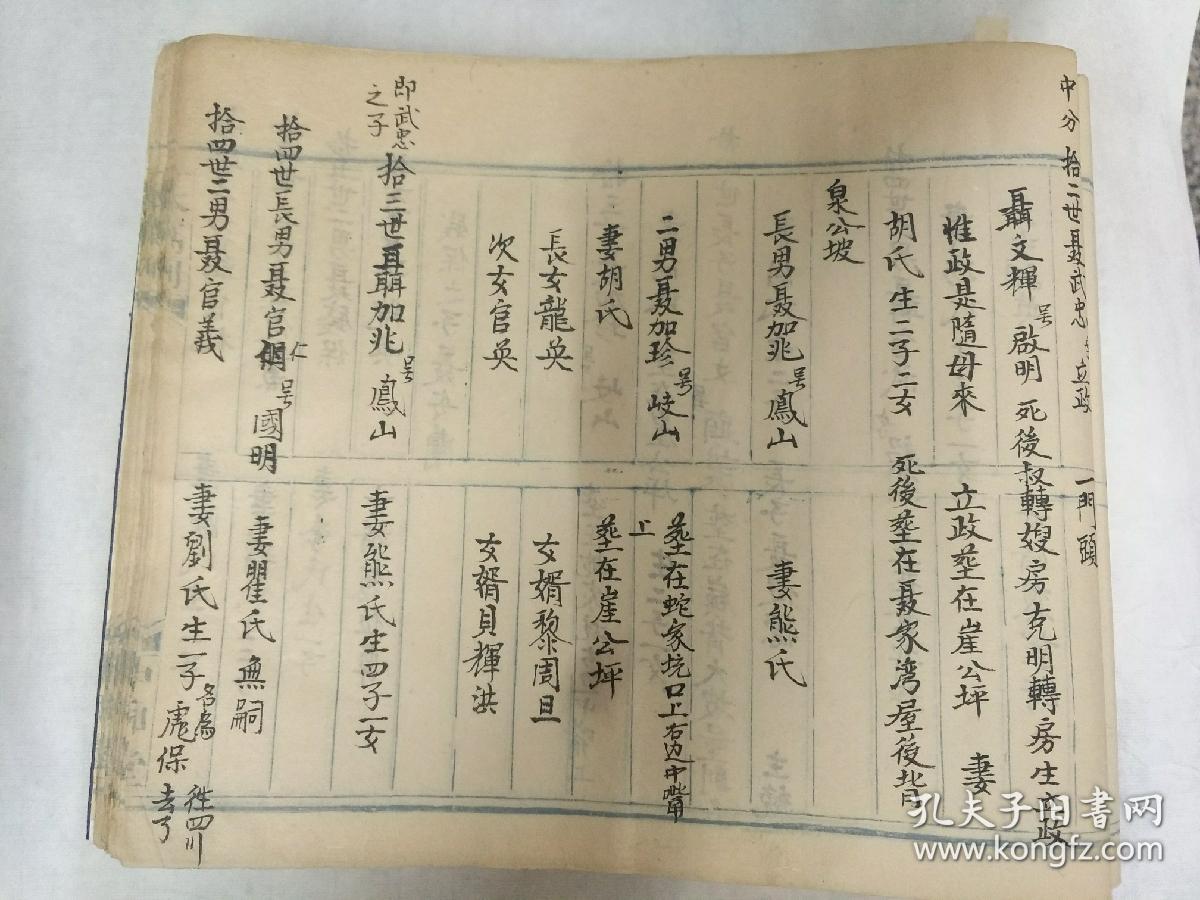 中分 拾二世聂武忠 立政 一門頭
聶文輝 号 啟明 死後叔轉嫂房克明轉房生立政
惟政是隨母來 立政塟在崖公坪 妻
胡氏生二子二女 死後塟在聂家湾屋後背
泉公坡
長男聂加兆 号 鳳山 妻熊氏
二男聂加珍 号 岐山 塟在蛇家坑口上右边中嘴
上
妻胡氏 塟在崖公坪
長女龍英 女婿黎周旦
次女官英 女婿貝輝洪
即武忠之子 拾三世聶加兆 号 鳳山 妻熊氏生四子一女
拾四世長男聂官仁 号 國明 妻瞿氏 無嗣
拾四世二男聂官義 妻劉氏生一子 名為 虎保 往四川去了
孔夫子旧书网
www.kongfz.com